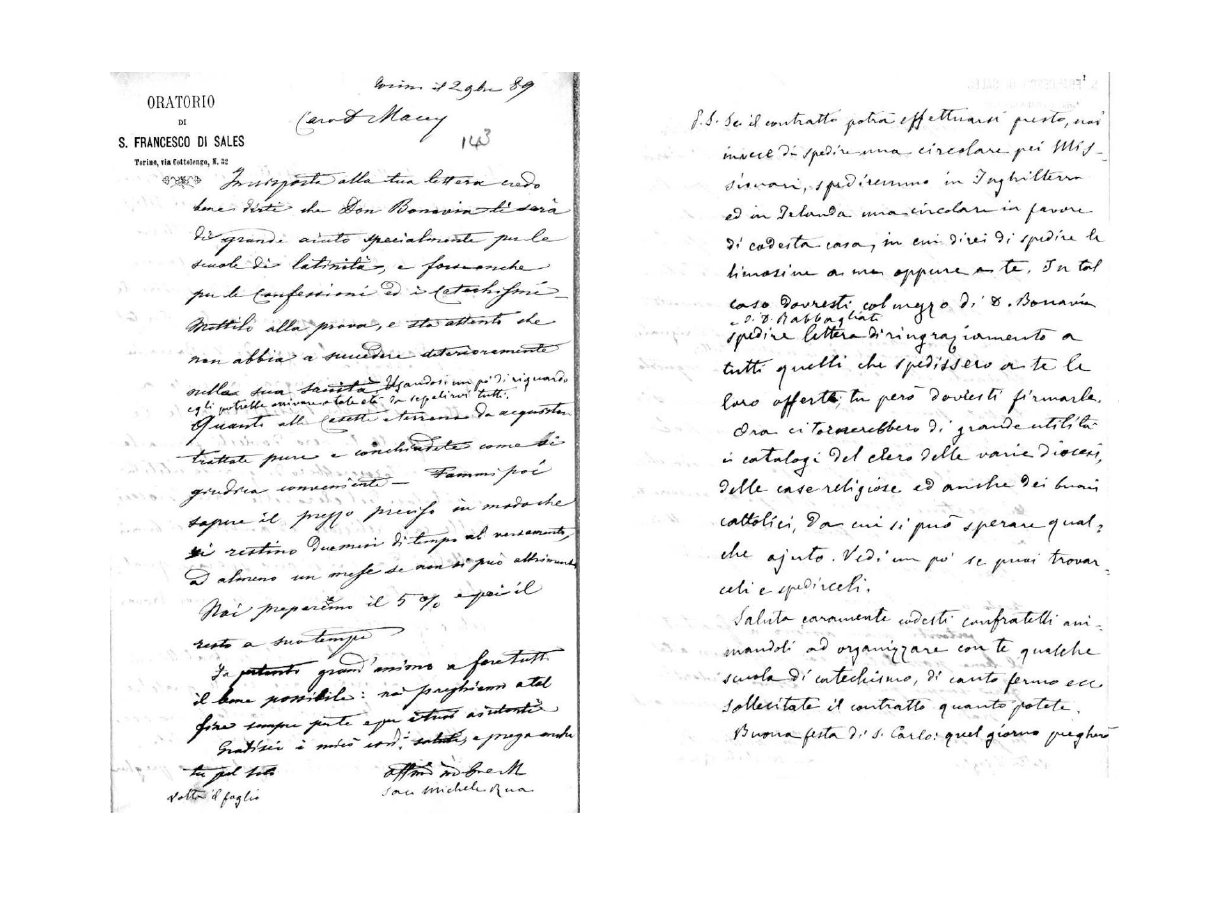 ORATORIO
DI
S. FRANCESCO DI SALES
Torino, via Cottolengo, N. 32
Torino il 2 9bre 89
Caro D. Macey
143
In risposta alla tua lettera credo
bene dirti che Don Bonavia ti sarà
di grande aiuto specialmente per le
scuole di latinità, e forse anche
per le Confessioni ed i Catechismi.
Mettilo alla prova, e sta attento che
non abbia a succedere deterioramento
nella sua sanità. Usandosi un po' di riguardo
egli potrebbe arrivare a tale età da sepelirvi tutti.
Quanto alle Casette e terreno da acquistar
trattate pure e conchiudete come si
giudica conveniente — Fammi poi
sapere il prezzo preciso in modo che
vi restino due mesi di tempo al versamento,
ad almeno un mese se non si può altrimenti
Noi prepareremo il 5 % e poi il
resto a suo tempo
Fa grand'animo a fare tutti
il bene possibile: noi preghiamo a tal
fine sempre per te e per i tuoi
Gradisci i miei cord. saluti, e prega anche
tu pel tuo
Volta il foglio
affmo in G. e M.
Sac. Michele Rua
P.S. Se il contratto potrà effettuarsi presto, noi
invece di spedire una circolare pei Mis-
sionari, spediremmo in Inghilterra
ed in Irlanda una circolare in favore
di codesta casa, in cui direi di spedire le
limosine a me oppure a te. In tal
caso dovresti col mezzo di D. Bonavia
e di D. Rabbagliati
spedire lettera di ringraziamento a
tutti quelli che spedissero a te le
loro offerte; tu però dovresti firmarle.
Ora ci tornerebbero di grande utilità
i catalogi del clero delle varie diocesi,
delle case religiose ed anche dei buoni
cattolici, da cui si può sperare qual-
che ajuto. Vedi un po' se puoi trovar-
celi e spedirceli.
Saluta caramente codesti confratelli ani-
mandoli ad organizzare con te qualche
scuola di catechismo, di canto fermo ecc
Sollecitate il contratto quanto potete.
Buona festa di S. Carlo: quel giorno pregherò